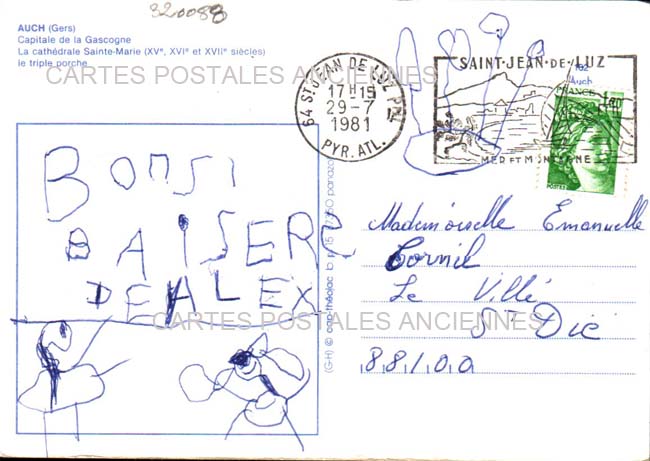 320088
AUCH (Gers)
Capitale de la Gascogne
La cathédrale Sainte-Marie (XVe, XVIe et XVIIe siècles)
le triple porche
CARTES POSTALES ANCIENNES
64 ST JEAN DE LUZ PPAL
17H15
29-7
1981
PYR. ATL.
SAINT-JEAN-DE-LUZ
MER ET MONTAGNE
Auch
FRANCE
POSTES
BONSI
BAISER
DEALEX
Mademoiselle Emanuelle
Cornil
Le Villé
St Dié
88100
CARTES POSTALES ANCIENNES